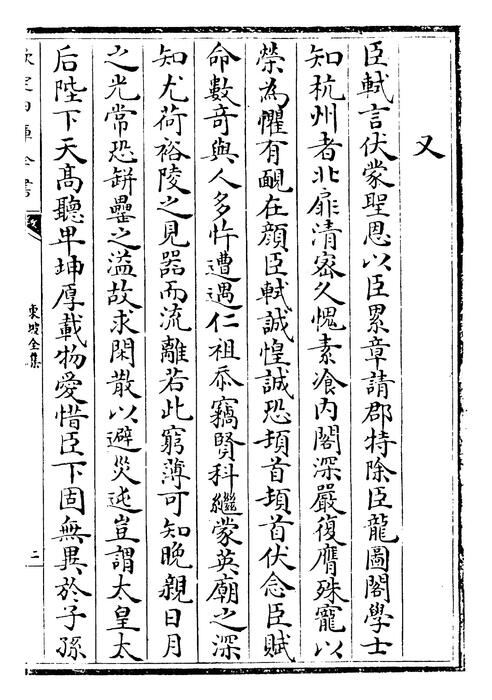 又
臣軾言伏蒙聖恩以臣累章請郡特除臣龍圖閣學士
知杭州者北扉清密久愧素飡内閣深嚴復膺殊寵以
榮為懼有靦在顔臣軾誠惶誠恐頓首頓首伏念臣賦
命數竒與人多忤遭遇仁祖忝竊賢科繼蒙英廟之深
知尤荷裕陵之見器而流離若此窮薄可知晚親日月
之光常恐缾罍之溢故求閑散以避災迍豈謂太皇太
后陛下天髙聽卑坤厚載物愛惜臣下固無異於子孫
欽定四庫全書
東坡全集
二